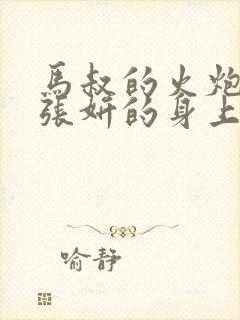 馬叔的火炮
張妍的身上
喻靜